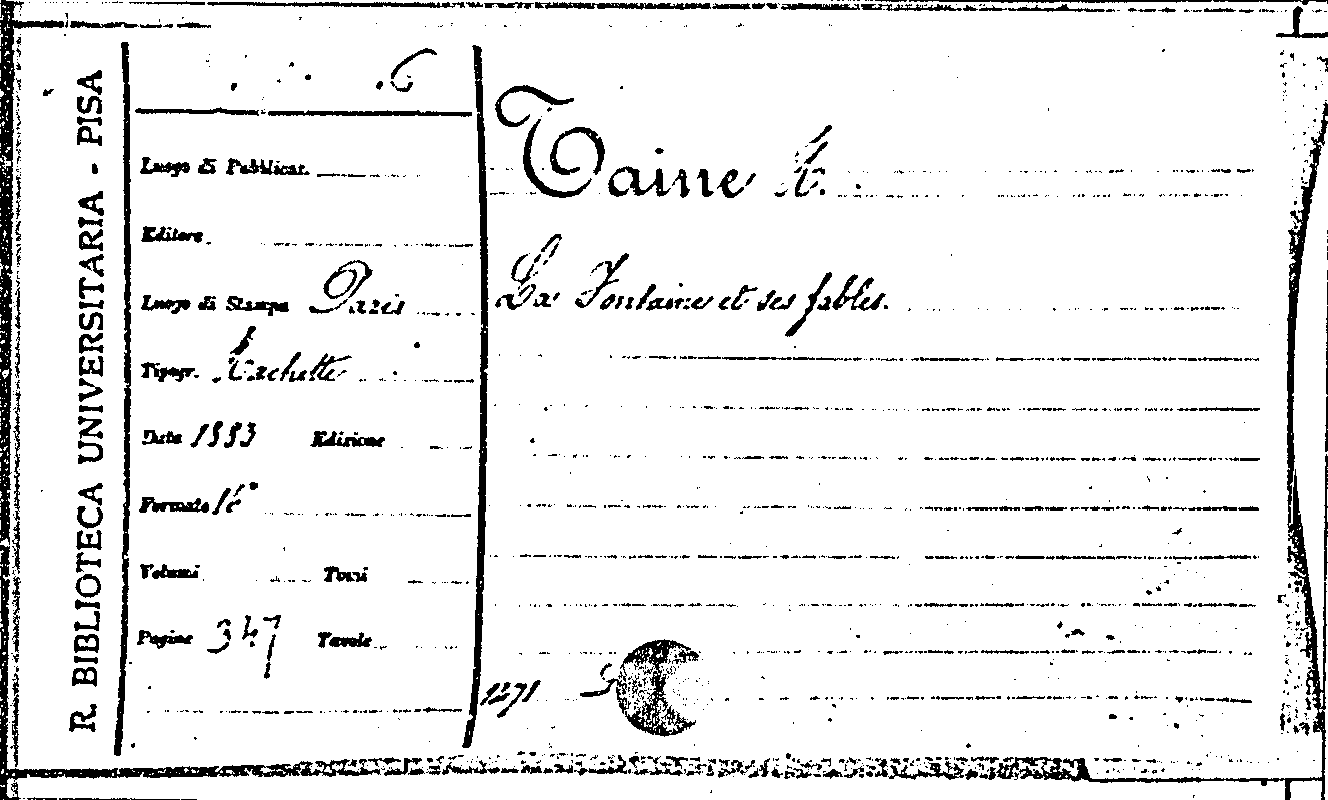 R. BIBLIOTECA UNIVERSITARIA - PISA
6
Luogo di Pubblicaz.
Editore
Luogo di Stampa Paris
Tipogr. Hachette
Data 1883 Edizione
Formato 16°
Volumi Tomi
Pagine 347 Tavole
Taine H.
La Fontaine et ses fables.
1271